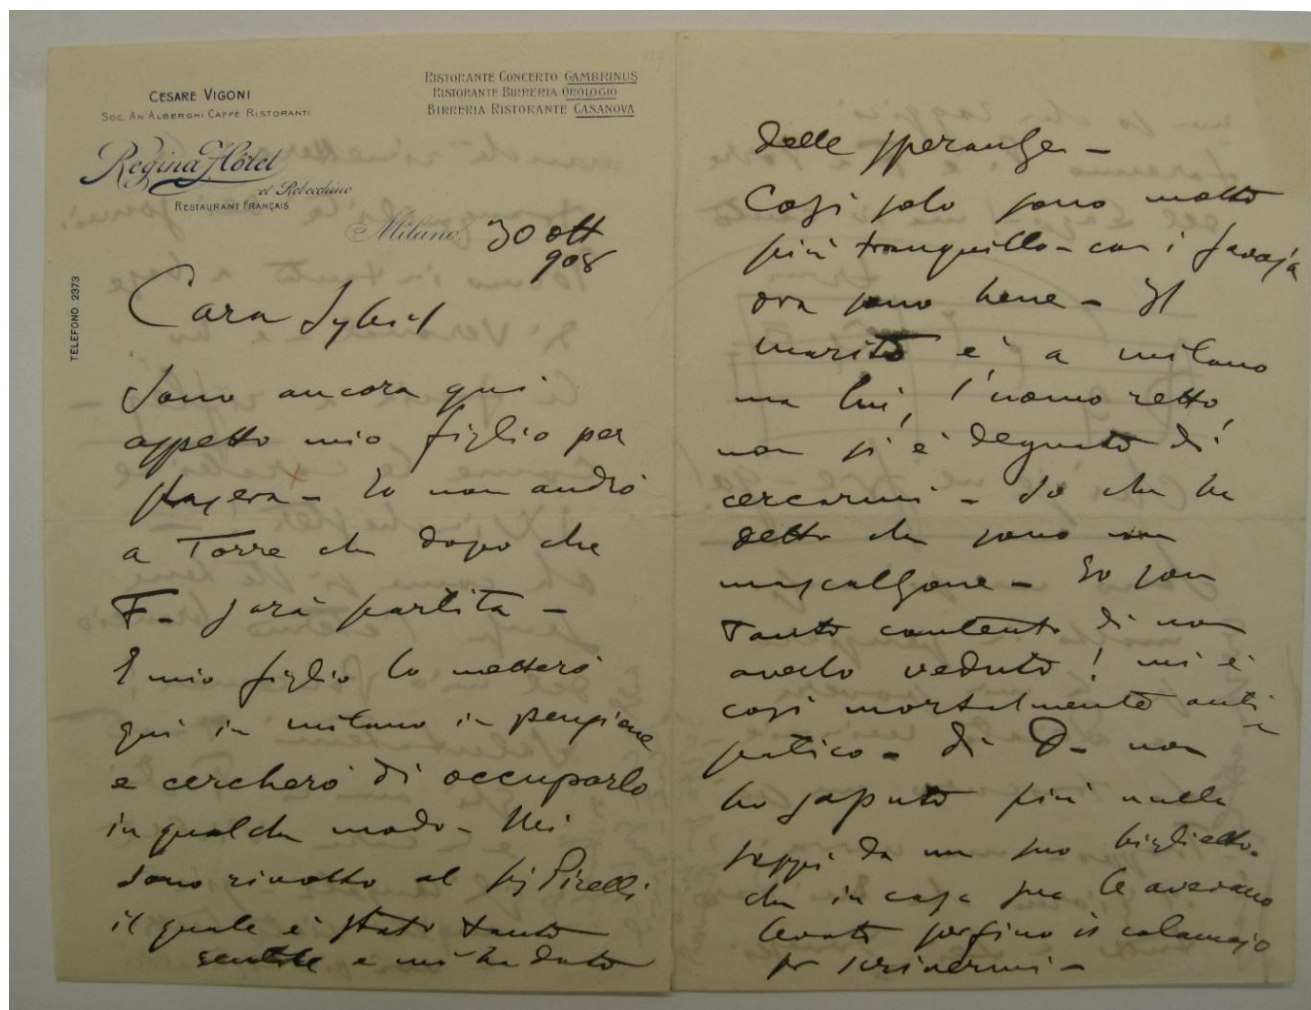 CESARE VIGONI
SOC. AN. ALBERGHI CAFFÈ RISTORANTI
Regina Hôtel
et Rebecchino
RESTAURANT FRANÇAIS
RISTORANTE CONCERTO GAMBRINUS
RISTORANTE BIRRERIA OROLOGIO
BIRRERIA RISTORANTE CASANOVA
TELEFONO 2373
Milano, 30 ott
908
Cara Sybil
Sono ancora qui
aspetto mio figlio per
stasera - Io non andrò
a Torre che dopo che
F- sarà partita -
E mio figlio lo metterò
qui in milano in pensione
e cercherò di occuparlo
in qualche modo - Mi
sono rivolto al sig Pirelli
il quale è stato tanto
gentile e mi ha dato
delle speranze -
Così solo sono molto
più tranquillo - con i
ora sono bene - Il
marito è a milano
ma lui, l'uomo retto,
non si è degnato di
cercarmi - So che ha
detto che sono un
mascalzone - Io son
tanto contento di non
averlo veduto! mi è
così mortalmente anti
patico - di D- non
ho saputo più nulla
seppi da un suo biglietto
che in casa sua le avevano
levato perfino il calamajo
per scrivermi -